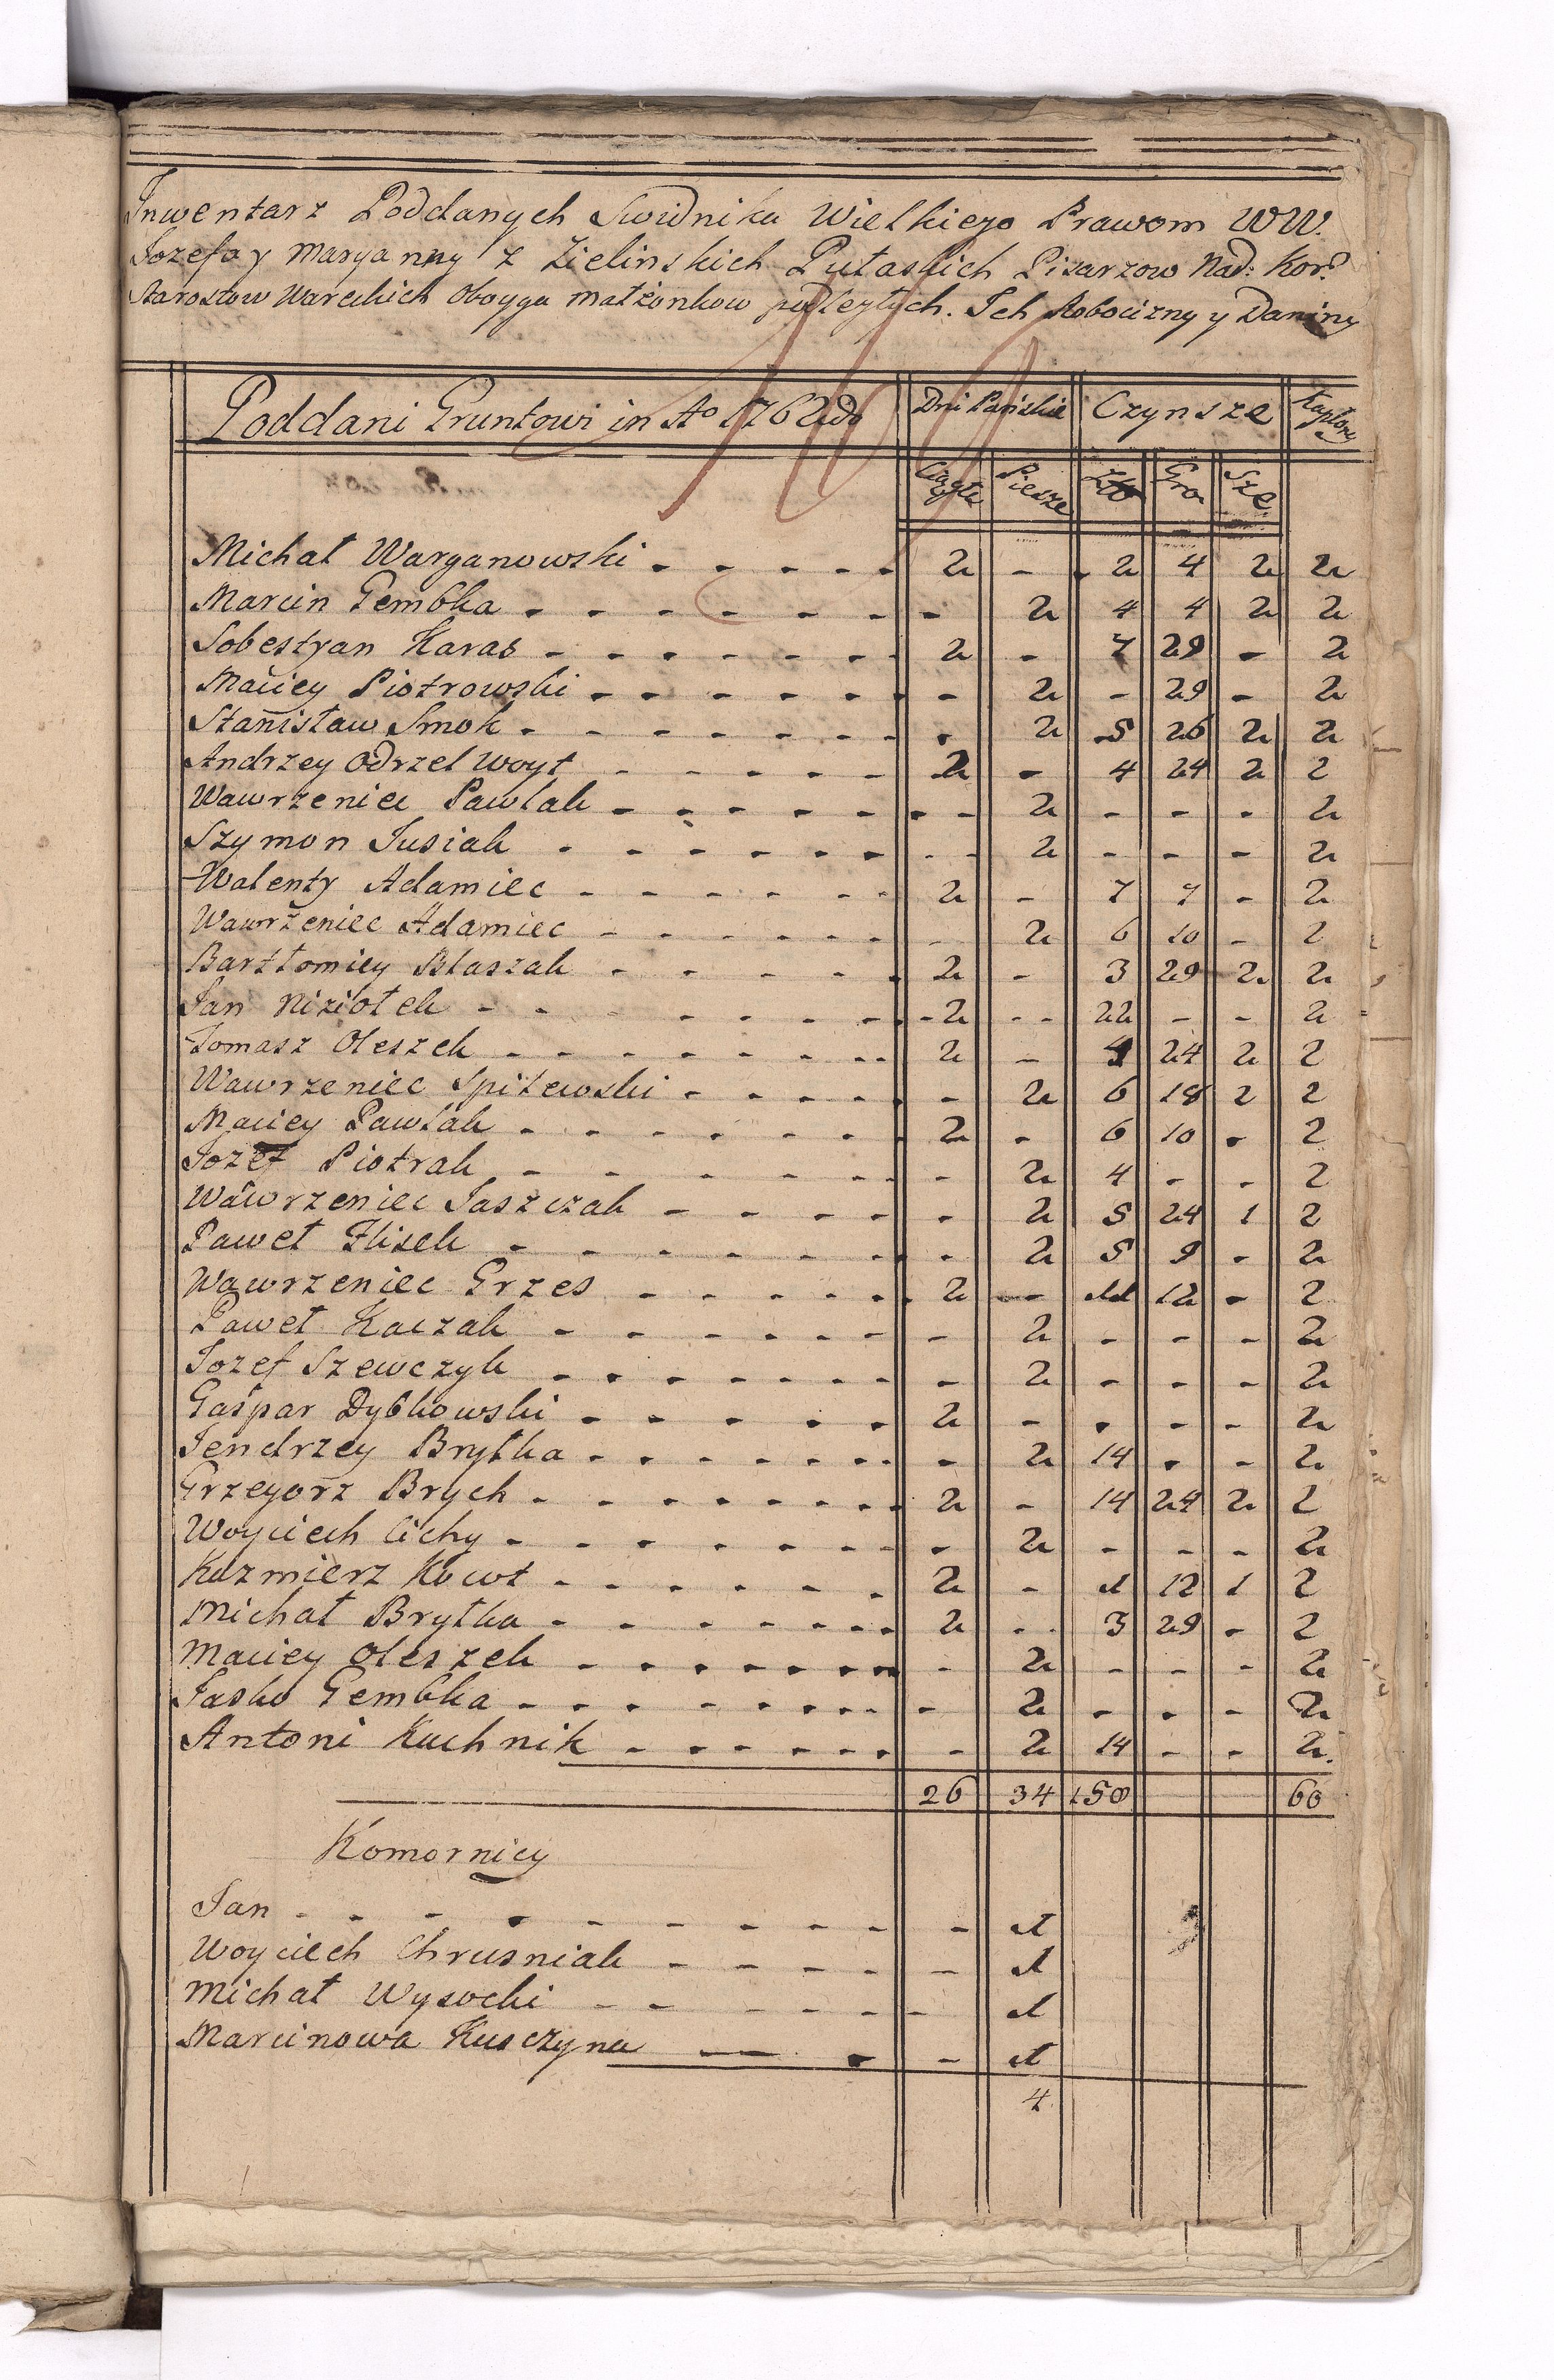 Inwentarz Poddanych Swidnika Wielkiego Prawom WW.
Jozefa y Maryanny z Zielinskich Pułaskich Pisarzow Nad: Kor?
Starostow Wareckich Oboyga małżonkow podległych. Ich Robocizny y Daniny
Poddani Gruntowi in Ao 1762do Dni Pańskie Czynsze Kapłony
Ciągłe Piesze Zło Gro Sze:
Michał Warganowski - - - - - 2 - 2 4 2 2
Marcin Gembka - - - - - - - - 2 4 4 2 2
Sobestyan Karas - - - - - - - 2 - 7 29 - 2
Maciey Piotrowski - - - - - - - 2 - 29 - 2
Stanisław Smok - - - - - - - - 2 5 26 2 2
Andrzey Odrzel Woyt - - - - - 2 - 4 24 2 2
Wawrzeniec Pawlak - - - - - - - 2 - - - 2
Szymon Jusiak - - - - - - - - 2 - - - 2
Walenty Adamiec - - - - - - 2 - 7 7 - 2
Wawrzeniec Adamiec - - - - - - - 2 6 10 - 2
Bartłomiey Błaszak - - - - - 2 - 3 29 2 2
Jan Niziołek - - - - - - - 2 - - 22 - - 2
Tomasz Oleszek - - - - - - - - 2 - 4 24 2 2
Wawrzeniec Spilewski - - - - - - 2 6 18 2 2
Maciey Pawlak - - - - - - - 2 - 6 10 - 2
Jozef Piotrak - - - - - - - - 2 4 - - 2
Wawrzeniec Jaszczak - - - - - 2 5 24 1 2
Paweł Flisek - - - - - - - - 2 5 9 - 2
Wawrzeniec Grzes - - - - - - 2 - 11 12 - 2
Paweł Kaczak - - - - - - - 2 - - - 2
Jozef Szewczyk - - - - - - - - 2 - - - 2
Gaspar Dybkowski - - - - - 2 - - - - 2
Jendrzey Brytka - - - - - - - - 2 14 - - 2
Grzegorz Brych - - - - - - - - 2 - 14 24 2 2
Woyciech Cichy - - - - - - - - 2 - - - 2
Kazmierz Kowt - - - - - - 2 - 1 12 1 2
Michał Brytka - - - - - - - 2 - - 3 29 - 2
Maciey Oleszek - - - - - - - - 2 - - - 2
Jasko Gembka - - - - - - - - - 2 - - - 2
Antoni Kuchnik - - - - - - - - 2 14 - - 2
26 34 158 60
Komornicy
Jan - - - - - - - - - - - 1
Woyciech Chrusniak - - - - - 1
Michał Wysocki - - - - - - 1
Marcinowa Kusczyna - - - 1
4